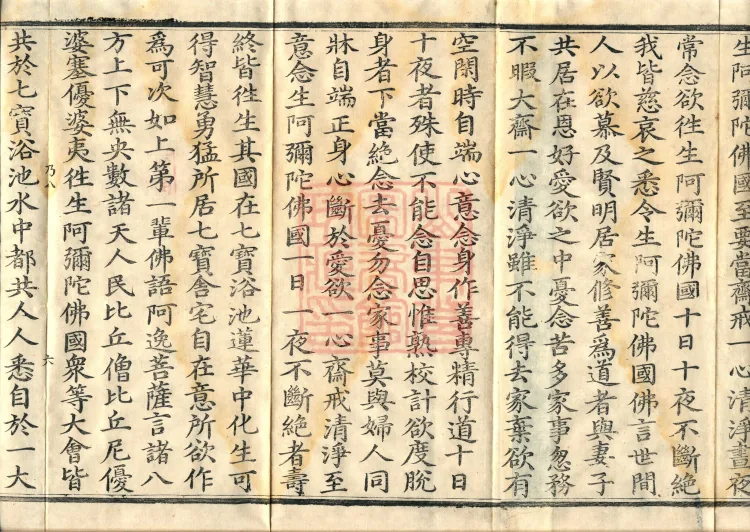 生阿彌陀佛國至要當齋戒一心清淨晝夜
常念欲往生阿彌陀佛國十日十夜不斷絶
我皆慈哀之悉令生阿彌陀佛國佛言世間
人以欲慕及賢明居家修善爲道者與妻子
共居在恩好愛欲之中憂念苦多家事怱務
不暇大齋一心清淨雖不能得去家棄欲有
空閑時自端心意念身作善專精行道十日
十夜者殊使不能念自思惟熟校計欲度脫
身者下當絶念去憂勿念家事莫與婦人同
牀自端正身心斷於愛欲一心齋戒清淨至
意念生阿彌陀佛國一日一夜不斷絶者壽
終皆徃生其國在七寶浴池蓮華中化生可
得智慧勇猛所居七寶舍宅自在意所欲作
爲可次如上第一輩佛語阿逸菩薩言諸八
方上下無央數諸天人民比丘僧比丘尼優
婆塞優婆夷徃生阿彌陀佛國衆等大會皆
乃八 六
共於七寶浴池水中都共人人悉自於一大